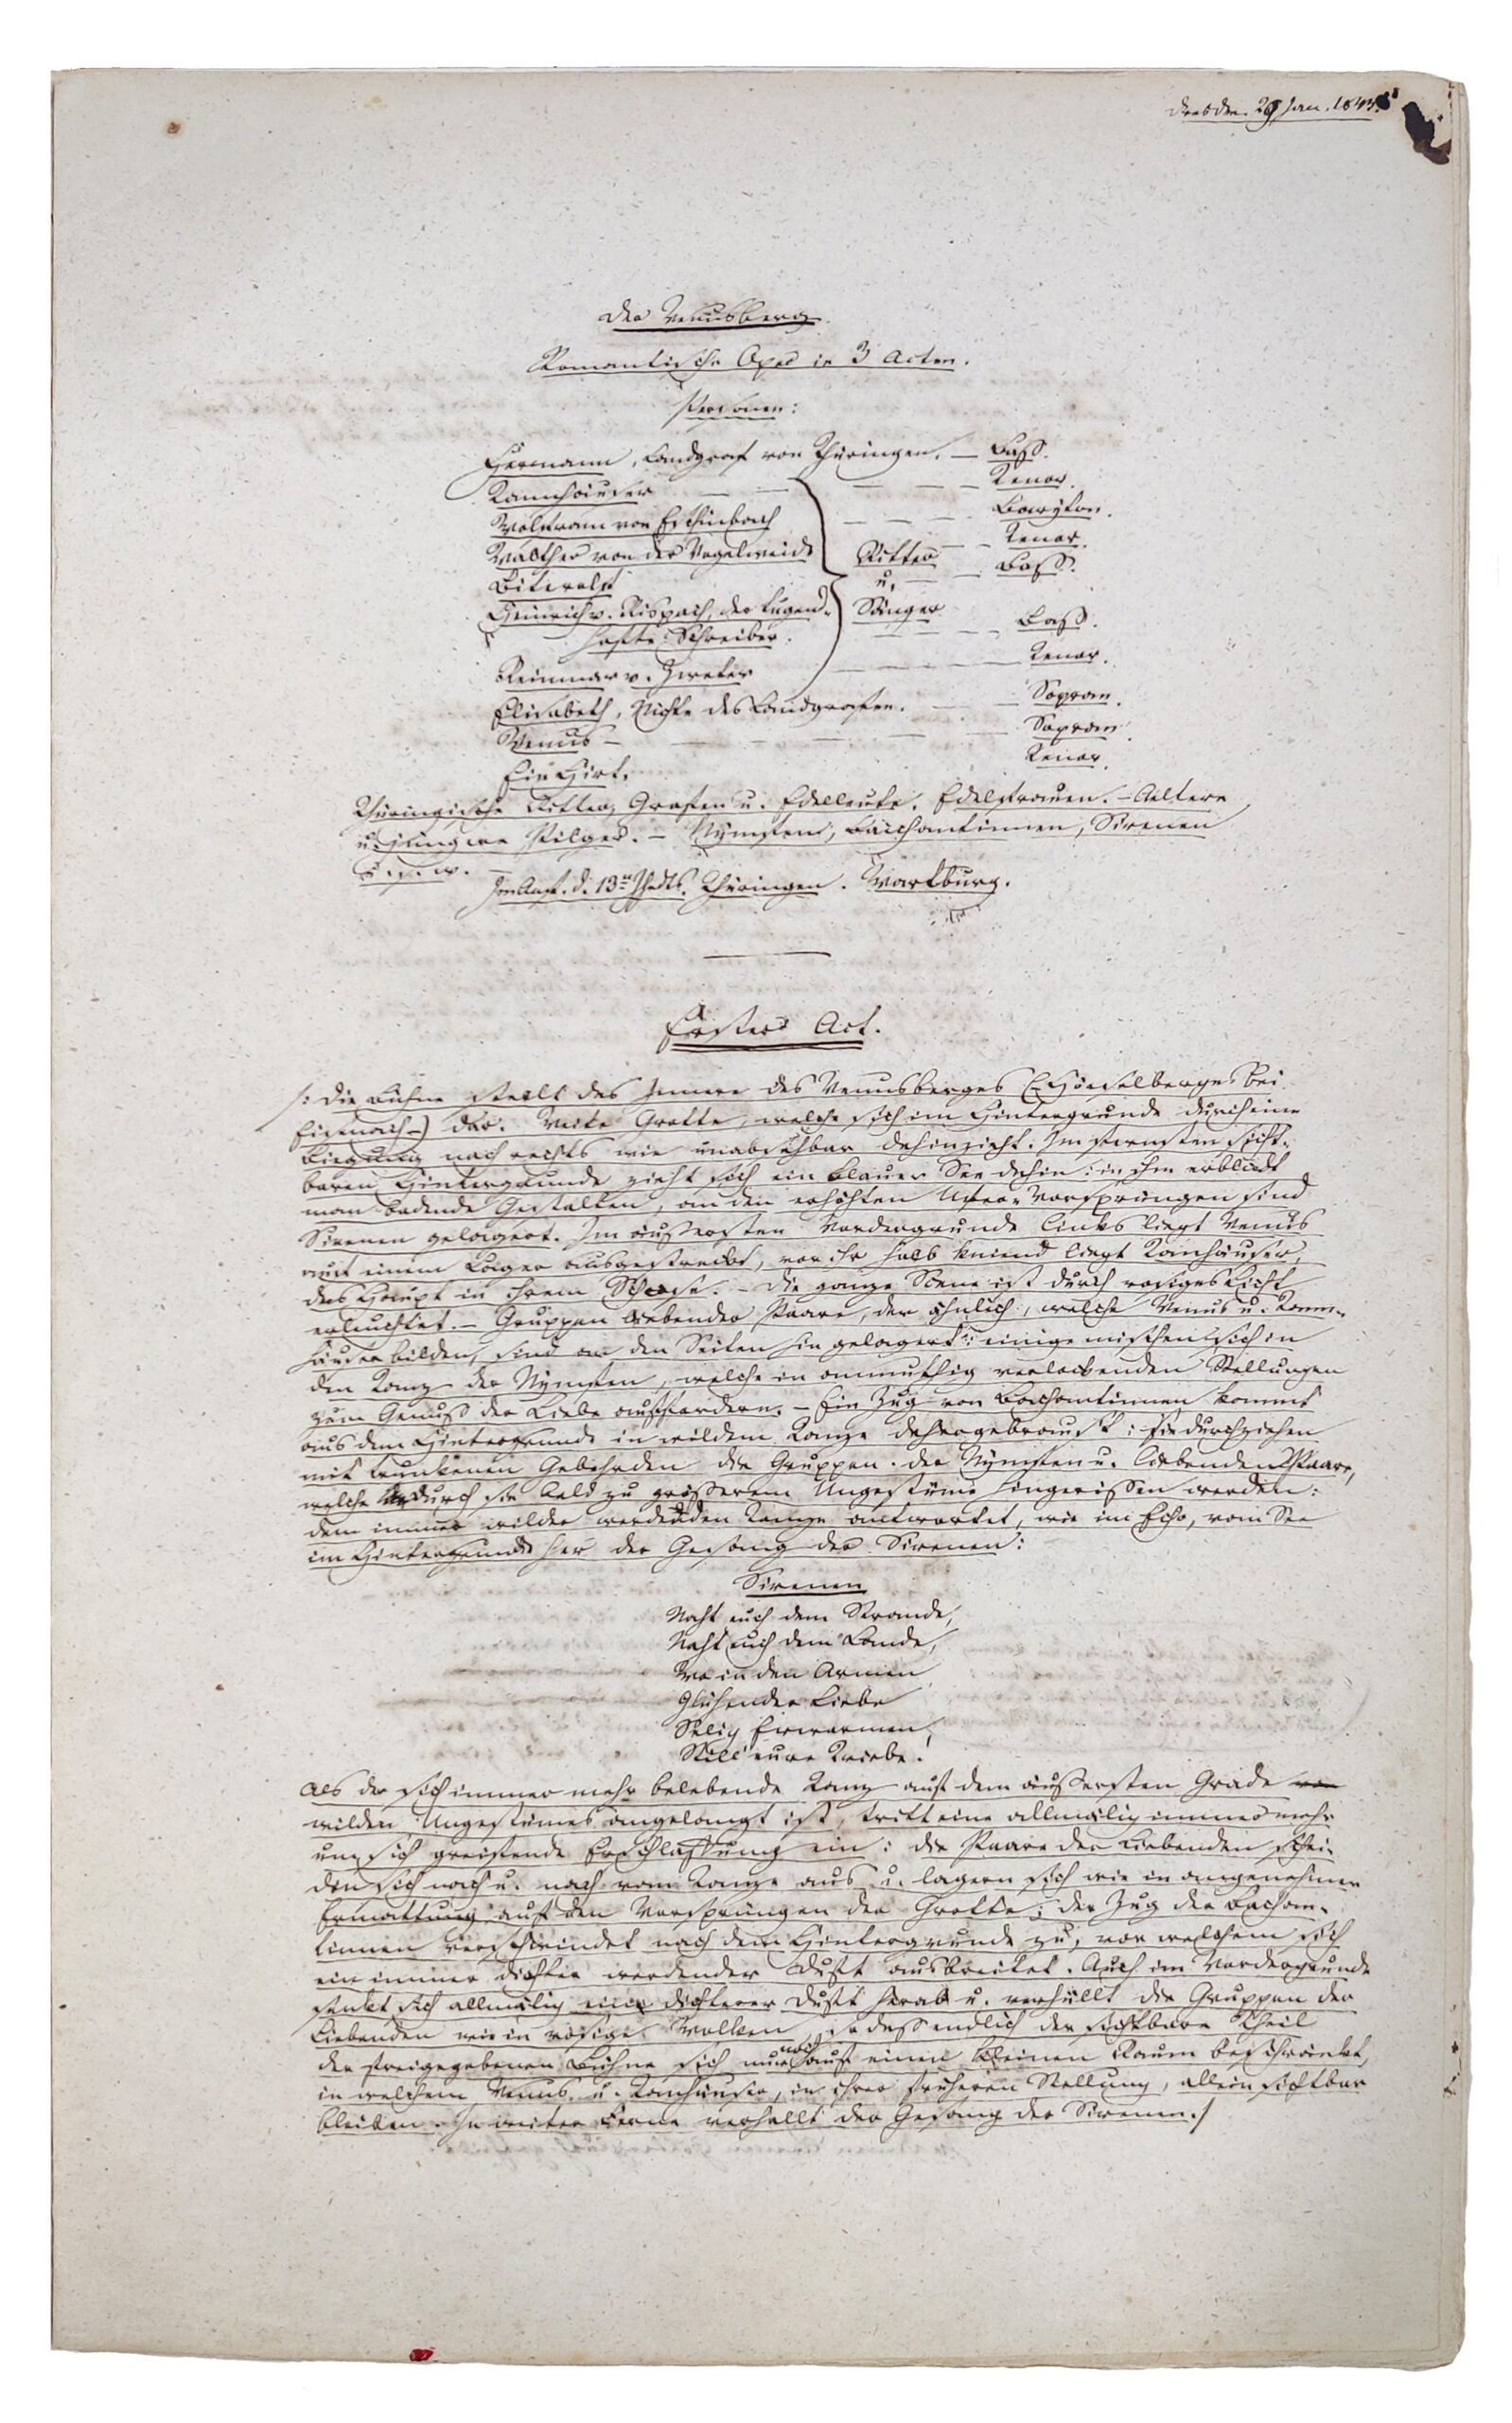 Dresden. 29 Jan. 1843.
Der Venusberg.
Romantische Oper in 3 Acten.
Personen:
Hermann, Landgraf von Thüringen. — Bass.
Tannhäuser — — — — — Tenor.
Wolfram von Eschinbach — — — Baryton.
Walther von der Vogelweide — — Tenor.
Ritter
Biterolf — — Bass.
u.
Heinrich v. Rispach, der tugend-
Sänger
hafte Schreiber. — — — — Bass.
Reinmar v. Zweter — — — — Tenor.
Elisabeth, Nichte des Landgrafen. — — Sopran.
Venus — — — — — — Sopran.
Ein Hirt. Tenor.
Thüringische Ritter, Grafen u. Edelleute. Edelfrauen. – Aeltere
u. jüngere Pilger. – Nymfen, Bacchantinnen, Sirenen
u. s. w. –
Im Anf. d. 13ten Jhdts. Thüringen. Wartburg.
Erster Act.
/: Die Bühne stellt das Innere des Venusberges (Hörselberges bei
Eisenach –) dar. Weite Grotte, welche sich im Hintergrunde durch eine
Biegung nach rechts wie unabsehbar dahinzieht. Im fernsten sicht-
baren Hintergrunde zieht sich ein blauer See dahin: in ihm erblickt
man badende Gestalten, an den erhöhten Ufer-Vorsprüngen sind
Sirenen gelagert. Im äußersten Vordergrunde links liegt Venus
auf einem Lager ausgestreckt, vor ihr halb knieend liegt Tanhäuser,
das Haupt in ihrem Schoose. – Die ganze Scene ist durch rosiges Licht
erleuchtet. – Gruppen liebender Paare, der ähnlich, welche Venus u. Tann-
häuser bilden, sind an den Seiten hin gelagert: einige mischen sich in
den Tanz der Nymfen, welche in anmuthig verlockenden Stellungen
zum Genuß der Liebe auffordern. – Ein Zug von Bachantinnen kommt
aus dem Hintergrunde in wildem Tanze dahergebraust: sie durchziehen
mit trunkenen Gebehrden die Gruppen der Nymfen u. liebenden Paare,
welche durch sie bald zu größerem Ungestüme hingerissen werden:
dem immer wilder werdenden Tanze antwortet, wie im Echo, vom See
im Hintergrunde her der Gesang der Sirenen:
Sirenen
Naht euch dem Strande,
Naht euch dem Lande,
Wo in den Armen
Glühender Liebe
Selig Erwarmen,
Still' eure Triebe.
Als der sich immer mehr belebende Tanz auf dem äußersten Grade
wilden Ungestümes angelangt ist, tritt eine allmälig immer mehr
um sich greifende Erschlaffung ein: die Paare der Liebenden schei-
den sich nach u. nach vom Tanze aus u. lagern sich wie in angenehmer
Ermattung auf den Vorsprüngen der Grotte; der Zug der Bachan-
tinnen verschwindet nach dem Hintergrunde zu, vor welchem sich
ein immer dichter werdender Duft ausbreitet. Auch im Vordergrunde
senkt sich allmälig ein dichterer Duft herab u. verhüllt die Gruppen der
Liebenden wie in rosige Wolken, so dass endlich der sichtbare Theil
der freigegebenen Bühne sich nur noch auf einen kleinen Raum beschränket,
in welchem Venus u. Tanhäuser, in ihrer früheren Stellung, allein sichtbar
bleiben. In weiter Ferne verhallt der Gesang der Sirenen. /